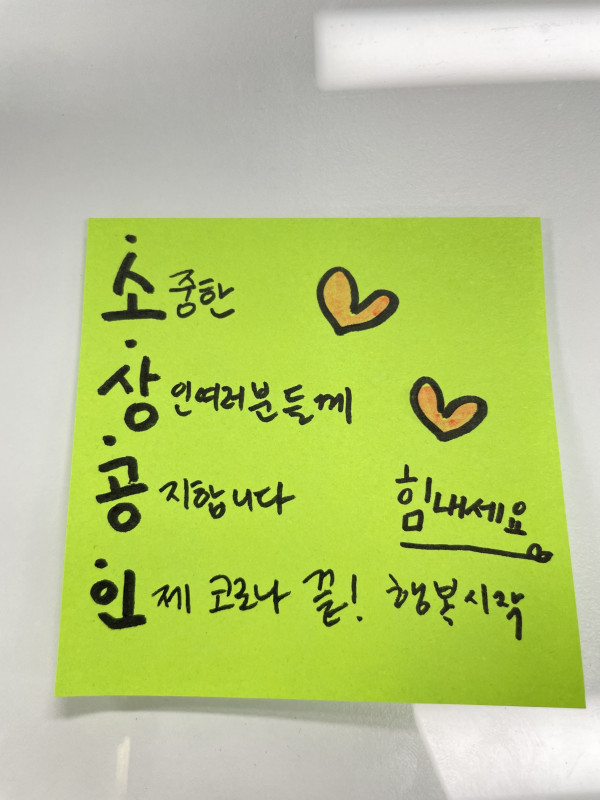 소중한
상인여러분들께
공지합니다
힘내세요
인제 코로나 끝! 행복시작